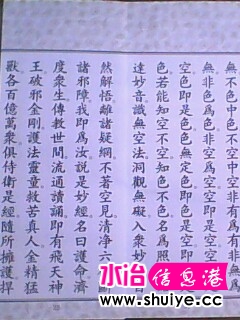 無不色中色不空中空非有為有非無為
無非色為色非空為空空即是空空無定
空色即是色色無定色即色是空即空是
色若能知空不空知色不色名為照
達妙音識無空法洞觀無礙入眾妙
然解悟離諸疑網不著空見清淨六
諸邪障我即為汝說是妙經名曰護命濟
度眾生傳教世間流通讀誦即有飛天神
王破邪金剛護法靈童救苦真人金精猛
獸各百億萬眾俱侍衛是經隨所擁護捍
水冶信息港
www.shuiye.cc